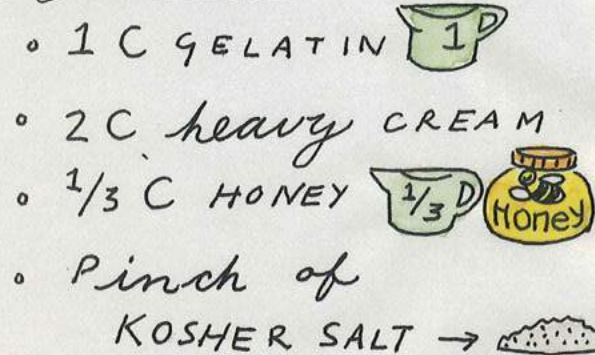 • 1 C GELATIN 1
• 2 C heavy CREAM
• 1/3 C HONEY 1/3 Honey
• Pinch of
KOSHER SALT →